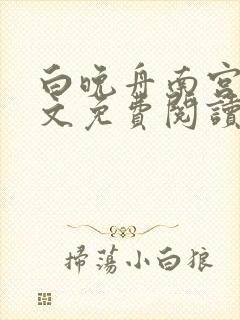 白晚舟南宫
文免費閱讀
掃蕩小白狼